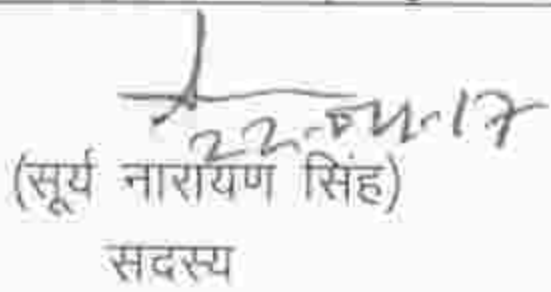 22.04.17
(सूर्य नारायण सिंह)
सदस्य